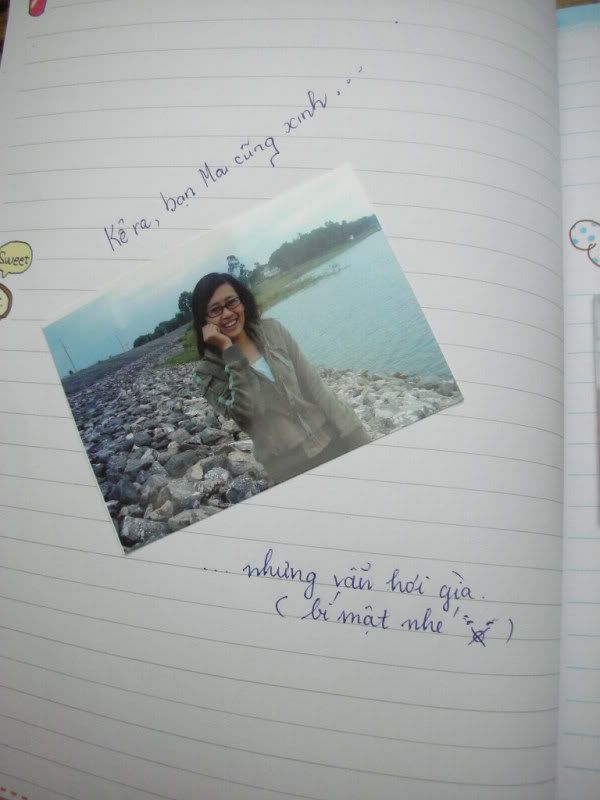 Kể ra, bạn Mai cũng xinh...
Sweet
... nhưng vẫn hơi già.
( bí mật nhé )